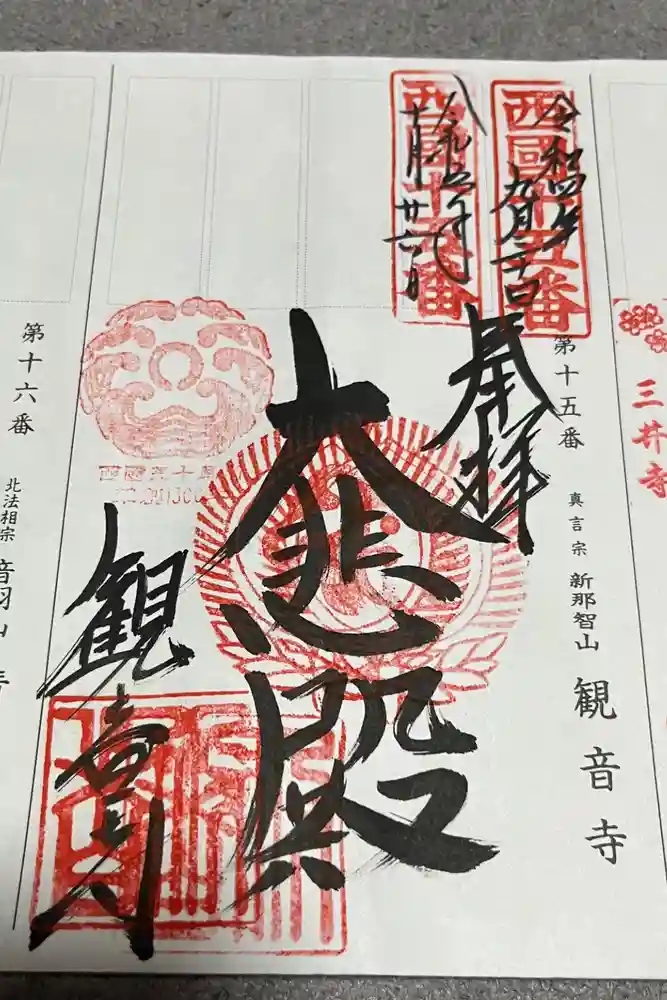 三井寺
第十五番
真言宗
新那智山
観音寺
令和四年
九月三十日
西國十五番
西國十六番
十月廿六日
奉拝
大悲殿
観音寺
第十六番
北法相宗
音羽山